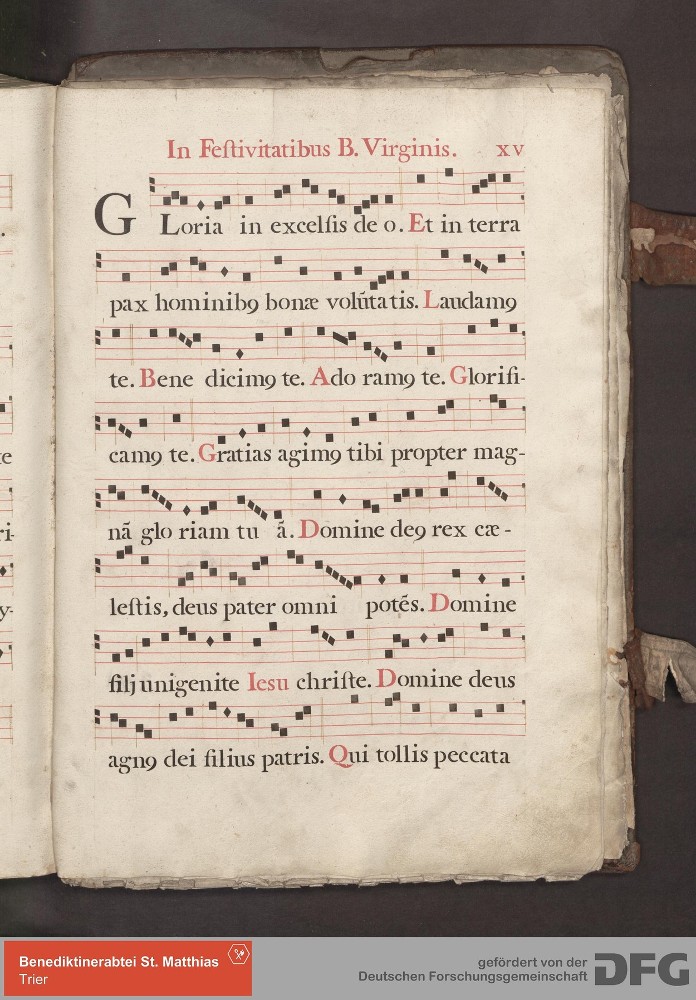 In Feſtivitatibus B. Virginis. XV
GLoria in excelſis de o. Et in terra
pax hominibꝯ bonæ volũtatis. Laudamꝯ
te. Bene dicimꝯ te. Ado ramꝯ te. Glorifi-
camꝯ te. Gratias agimꝯ tibi propter mag-
nã glo riam tu ã. Domine deꝯ rex cæ-
leſtis, deus pater omni potẽs. Domine
filj unigenite Iesu chriſte. Domine deus
agnꝯ dei filius patris. Qui tollis peccata
te
ri-
y-
Benediktinerabtei St. Matthias
Trier
gefördert von der
Deutschen Forschungsgemeinschaft
DFG